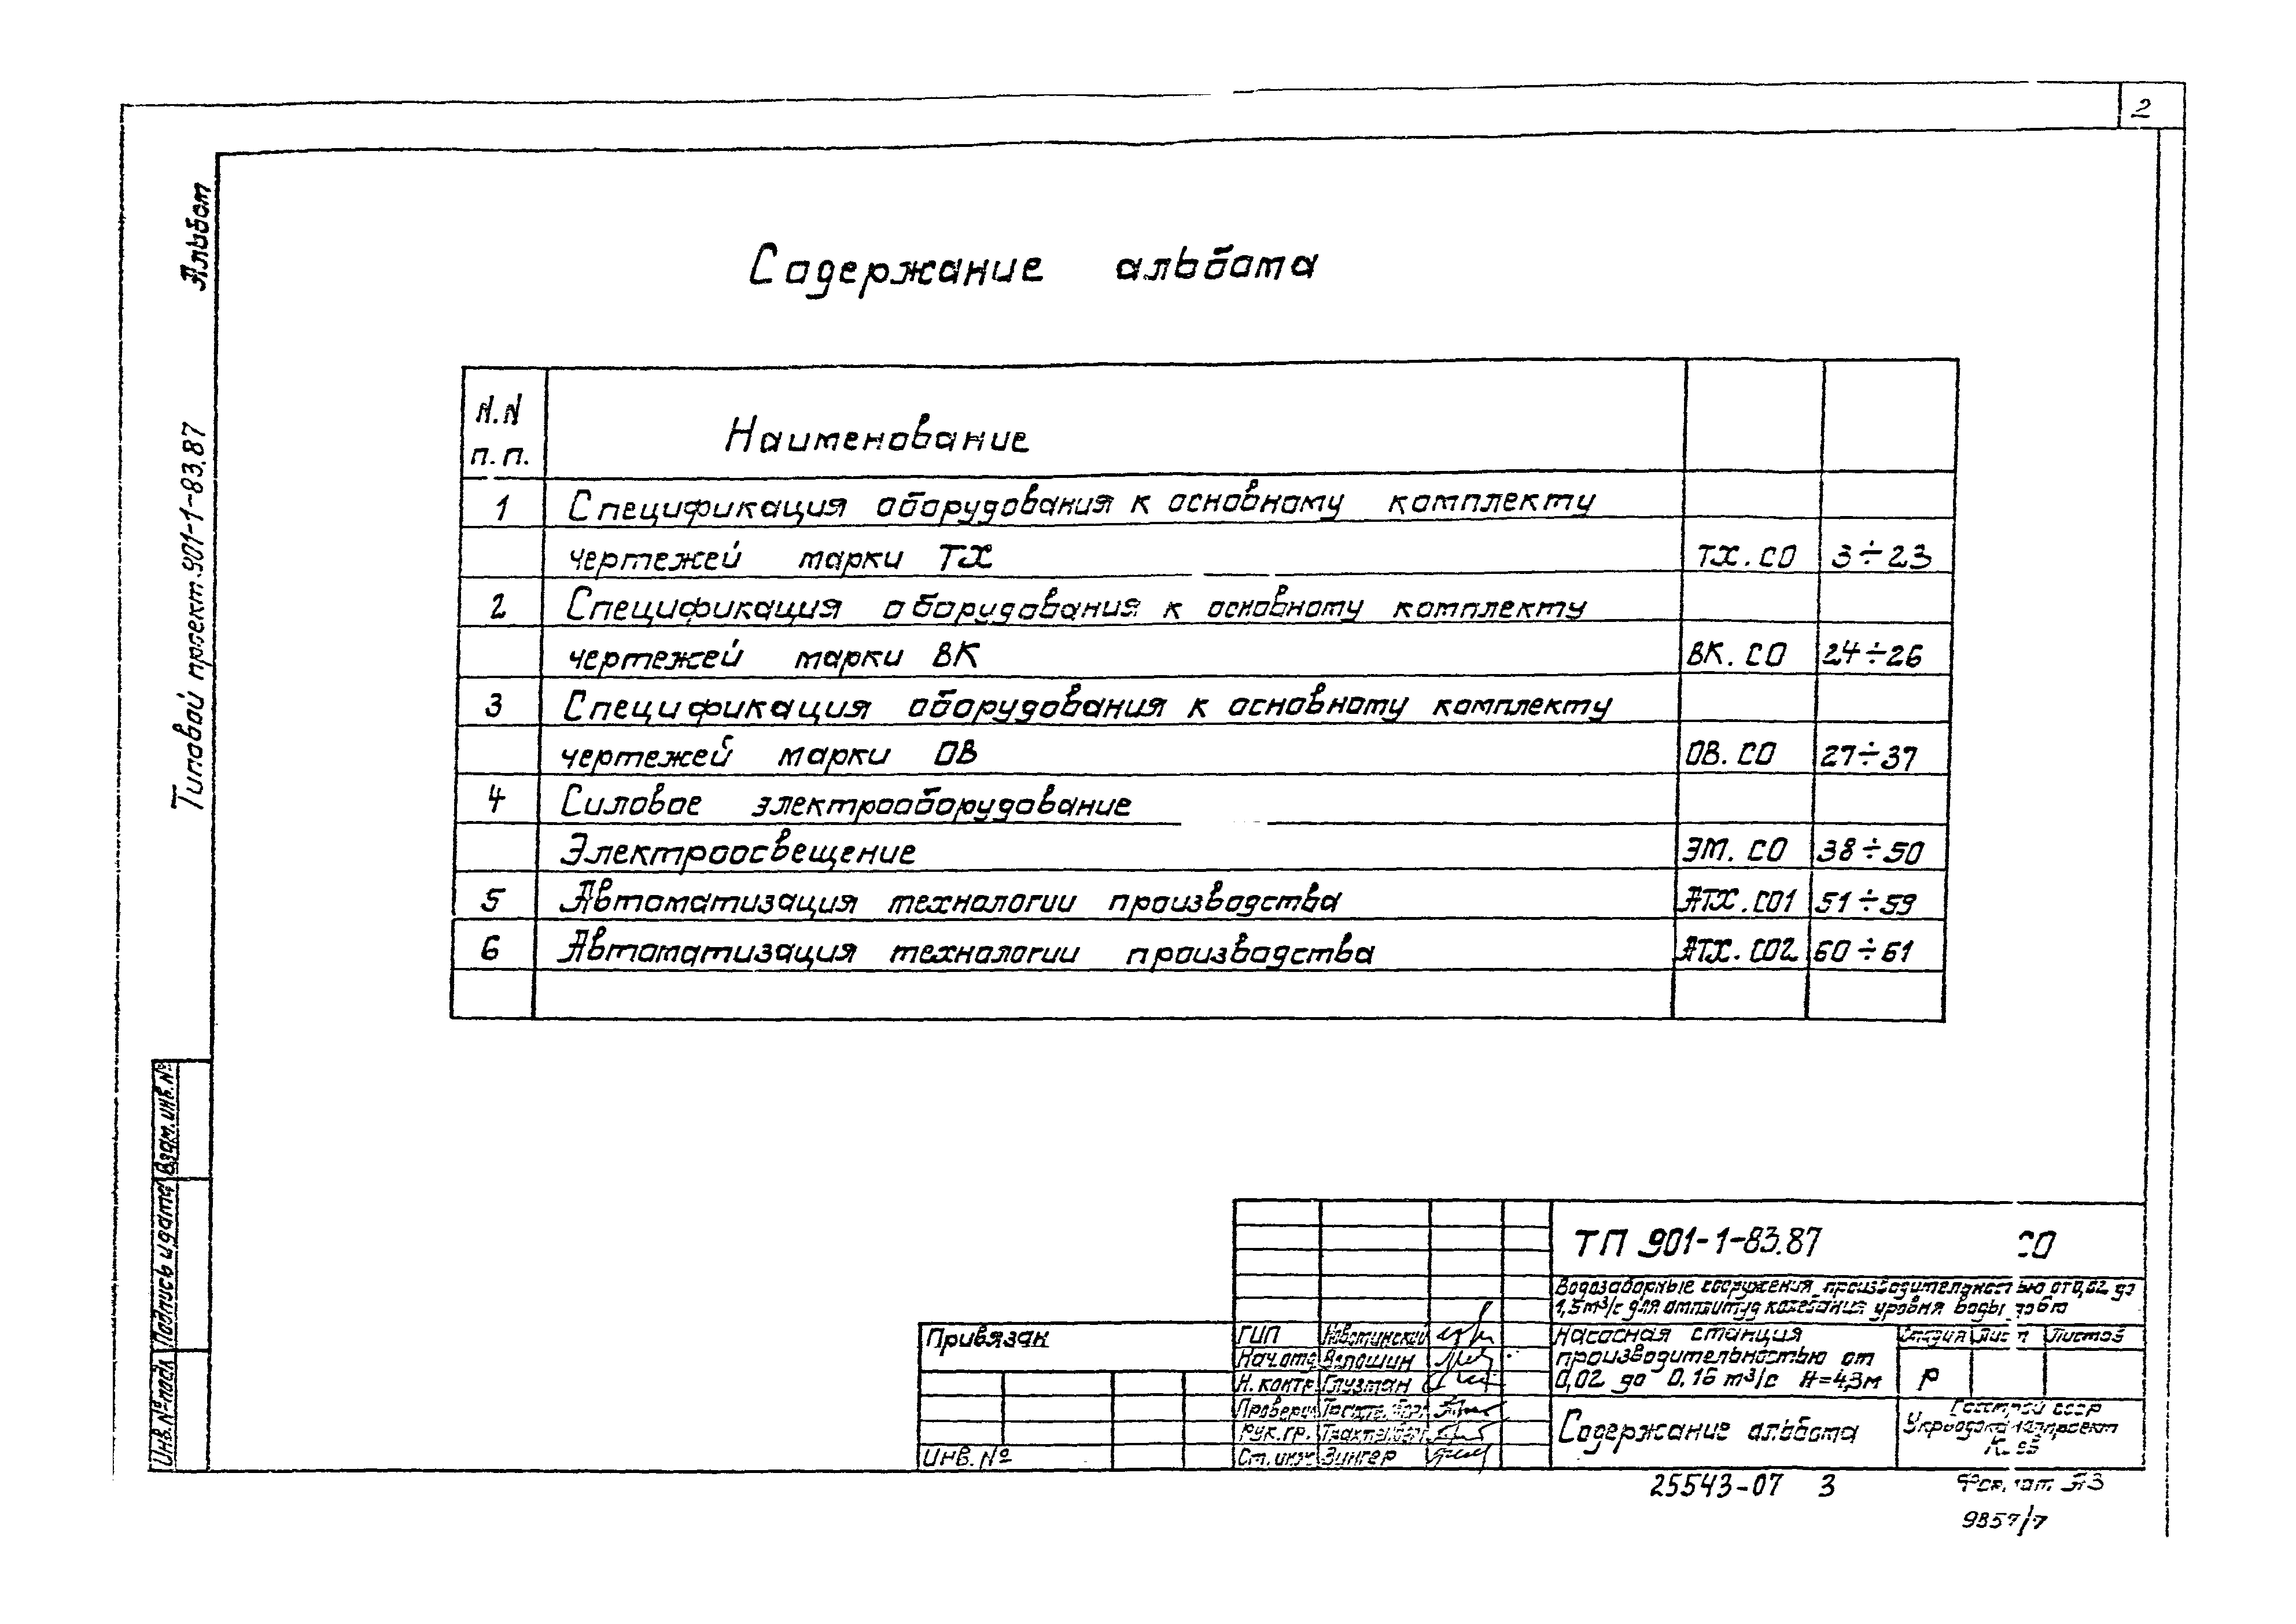 2
Альбом
Типовой проект 901-1-83.87
Содержание альбома
N.N
п.п.
Наименование
1 Спецификация оборудования к основному комплекту
чертежей марки ТХ ТХ.СО 3÷23
2 Спецификация оборудования к основному комплекту
чертежей марки ВК ВК.СО 24÷26
3 Спецификация оборудования к основному комплекту
чертежей марки ОВ ОВ.СО 27÷37
4 Силовое электрооборудование
Электроосвещение ЭМ.СО 38÷50
5 Автоматизация технологии производства АТХ.СО1 51÷59
6 Автоматизация технологии производства АТХ.СО2 60÷61
Взам.инв.№
Подпись и дата
Инв.№подл
ТП 901-1-83.87 СО
Водозаборные сооружения производительностью от 0,02 до
1,5м³/с для амплитуд колебания уровня воды
Привязан
Инв.№
ГИП
Нач.отд Волошин
Н.контр Глузман
Проверил
Рук.гр.
Ст.инж Зингер
Насосная станция
производительностью от
0,02 до 0.16 м³/с Н=4,3м
Стадия Лист Листов
Р
Содержание альбома
Госстрой СССР
Укрводоканалпроект
Киев
25543-07 3
Формат А3
9857/7